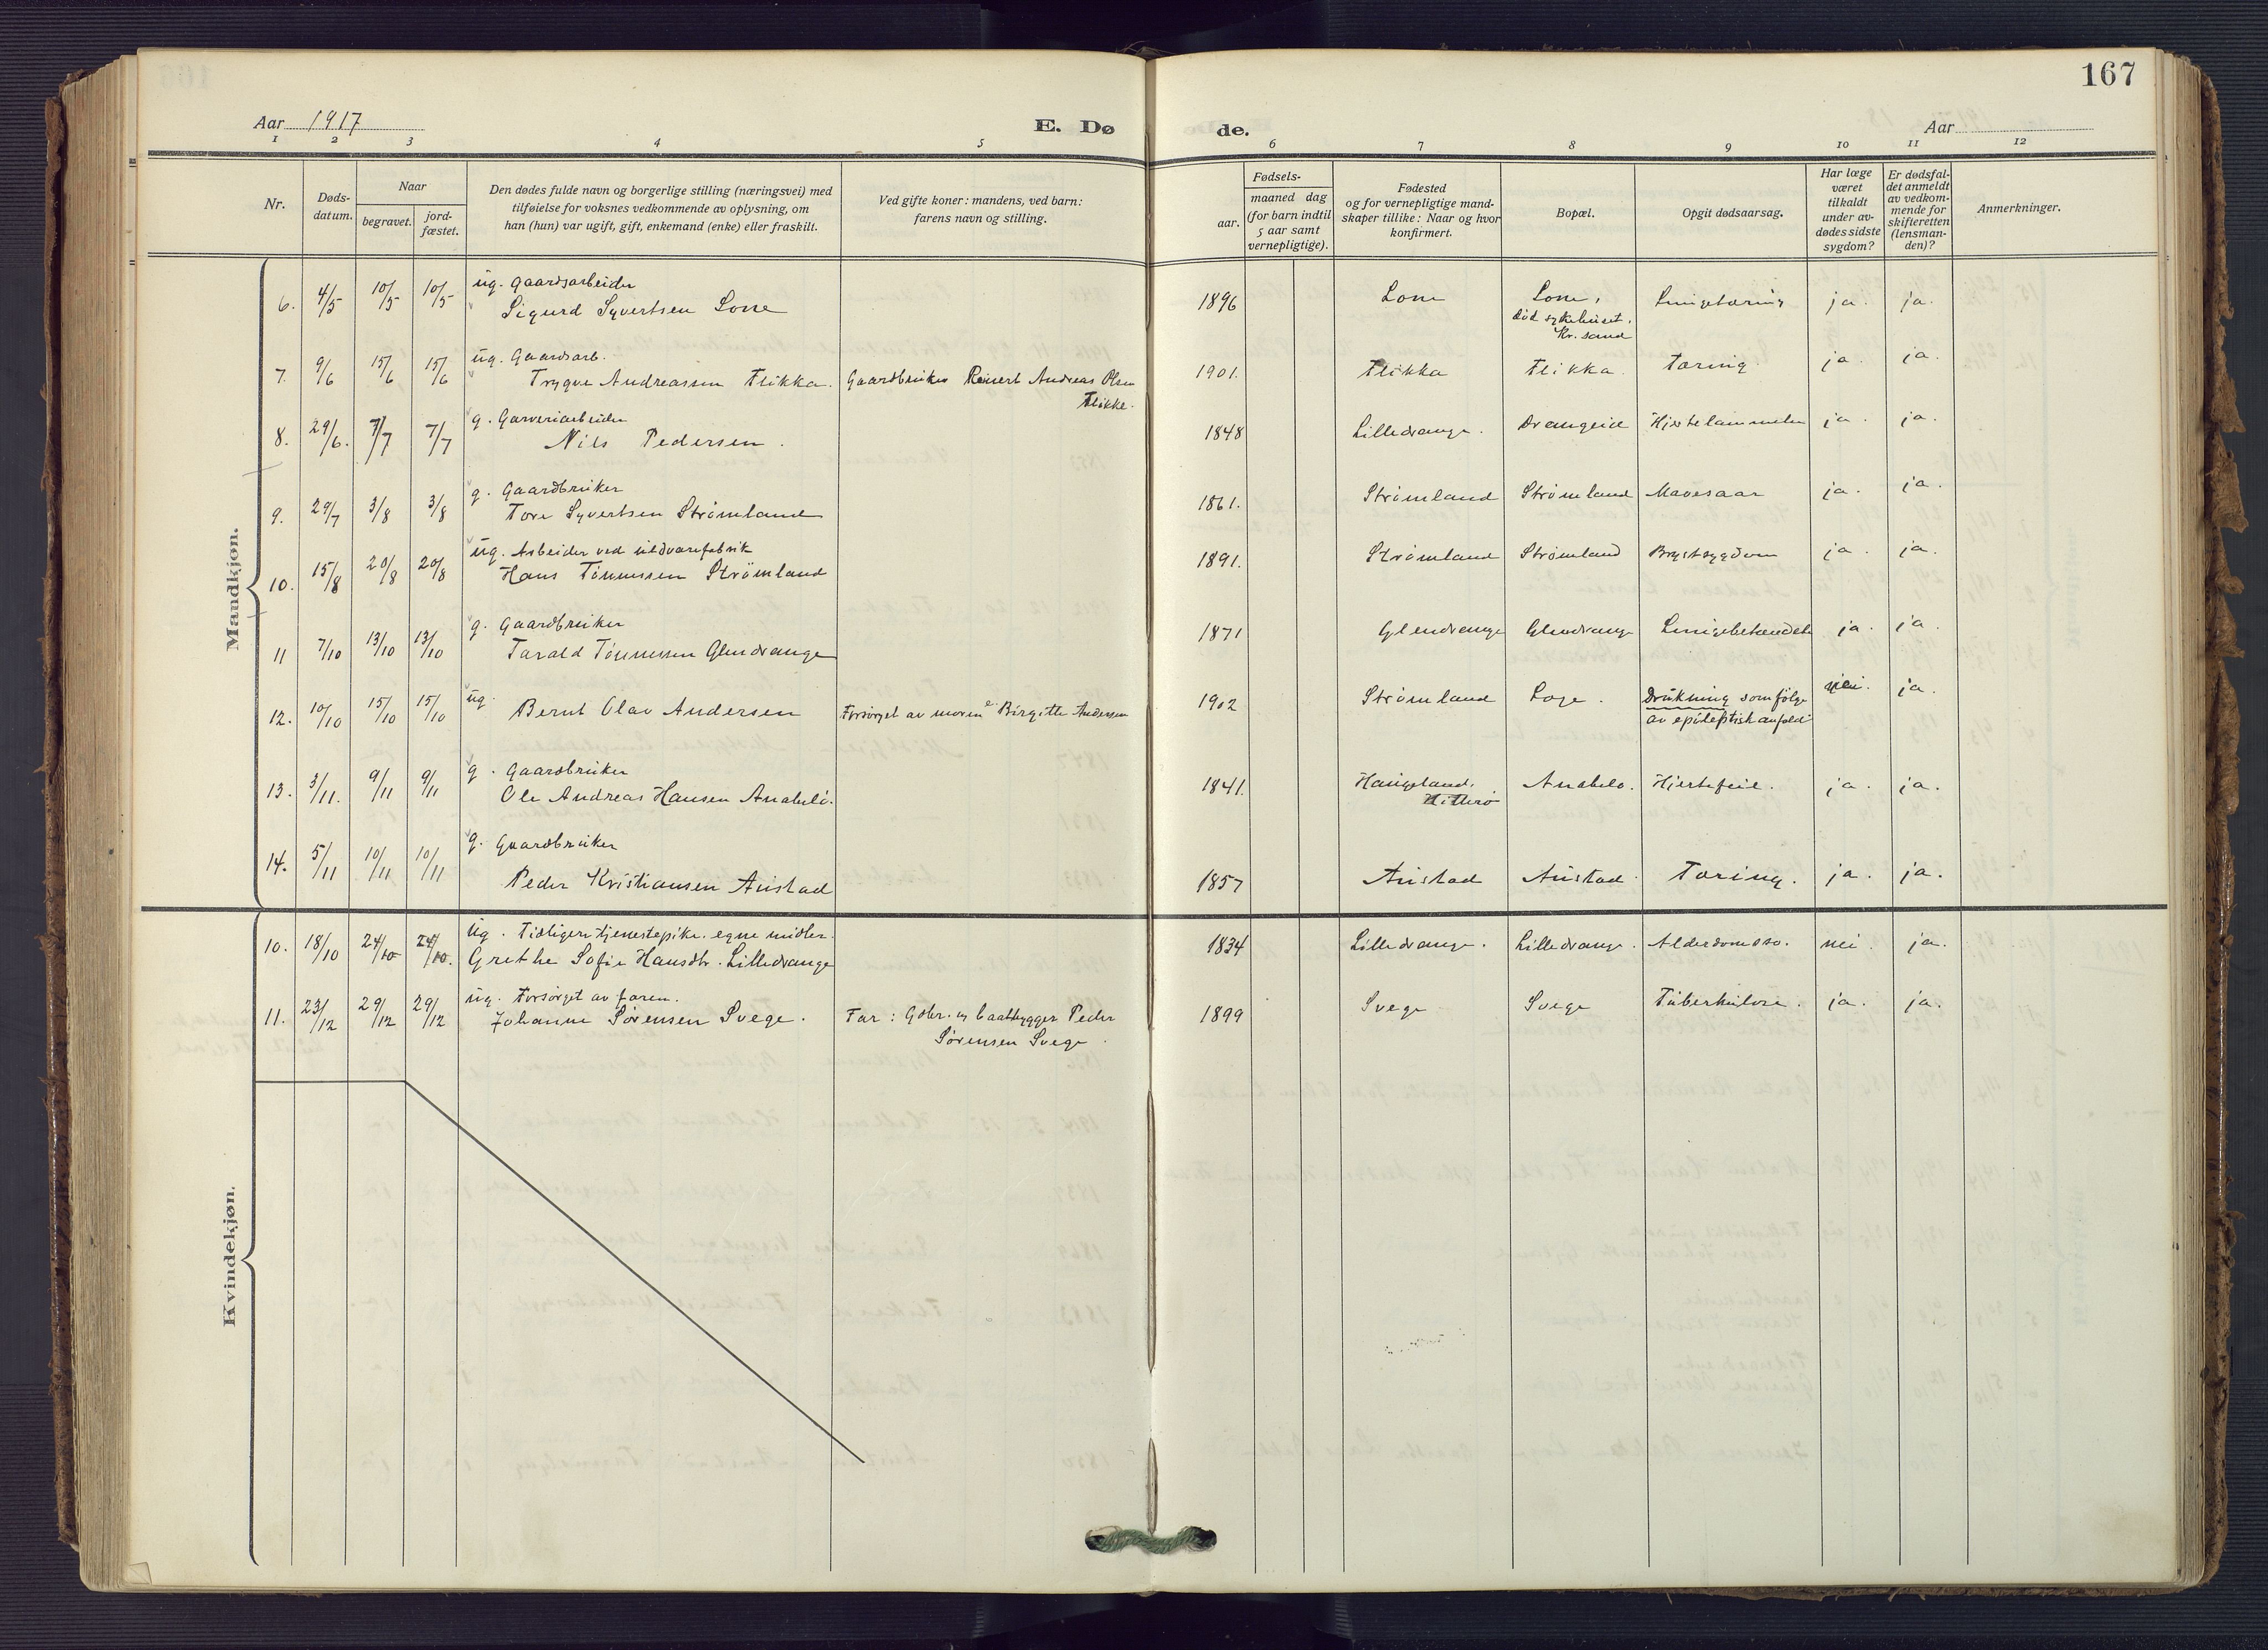 167
Aar 1917
E. Dø
de.
Aar
1 2 3 4 5 6 7 8 9 10 11 12
Nr.
Døds-
datum.
Naar
begravet.
jord-
fæstet.
Den dødes fulde navn og borgerlige stilling (næringsvei) med
tilføielse for voksnes vedkommende av oplysning, om
han (hun) var ugift, gift, enkemand (enke) eller fraskilt.
Ved gifte koner: mandens, ved barn:
farens navn og stilling.
Fødsels-
aar.
maaned dag
(for barn indtil
5 aar samt
vernepligtige).
Fødested
og for vernepligtige mand-
skaper tillike: Naar og hvor
konfirmert.
Bopæl.
Opgit dødsaarsag.
Har læge
været
tilkaldt
under av-
dødes sidste
sygdom?
Er dødsfal-
det anmeldt
av vedkom-
mende for
skifteretten
(lensman-
den)?
Anmerkninger.
Mandkjøn.
ug. Gaardsarbeider
6. 4/5 10/5 10/5 Sigurd Syvertsen Lone 1896 Lone Lone, Lungetæring ja. ja.
død sykehuset.
Kr. sand
ug. Gaardsarb.
7. 9/6 15/6 15/6 Trygve Andreassen Flikka. Gaardbruker Reinert Andreas Olsen 1901. Flikka Flikka Tæring. ja. ja.
Flikke.
g. Garveriarbeider
8. 29/6. 7/7 7/7 Nils Pedersen. 1848 Lilledrange. Drangeid Hjertelammelse ja. ja.
g. Gaardbruker
9. 29/7 3/8 3/8 Tore Syvertsen Strømland 1861. Strømland Strømland Mavesaar ja. ja.
ug. Arbeider ved uldvarefabrik
10. 15/8 20/8 20/8 Hans Tønnessen Strømland 1891. Strømland Strømland Brystsygdom ja. ja.
g. Gaardbruker
11 7/10 13/10 13/10 Tarald Tønnessen Glendrange 1871 Glendrange Glendrange Lungebetændelse ja. ja.
ug.
12. 10/10 15/10 15/10 Bernt Olav Andersen Forsørget av moren Birgitte Andersen 1902 Strømland Loge. Drukning som følge nei. ja.
av epileptisk anfald
g. Gaardbruker
13. 3/11. 9/11 9/11 Ole Andreas Hansen Anabelø. 1841. Haugeland, Anabelø. Hjertefeil. ja. ja.
Hitterø
g. Gaardbruker
14. 5/11 10/11 10/11 Peder Kristiansen Austad 1857 Austad Austad Tæring. ja. ja.
Kvindekjøn.
ug. Tidligere tjenestepike. egne midler.
10. 18/10 24/10 24/10. Grethe Sofie Hansdtr. Lilledrange 1834 Lilledrange. Lilledrange. Alderdomssv. nei. ja.
ug. Forsørget av faren.
11. 23/12 29/12 29/12 Johanne Sørensen Svege. Far: Gdbr. og baatbygger Peder 1899 Svege Svege Tuberkulose. ja. ja.
Sørensen Svege.